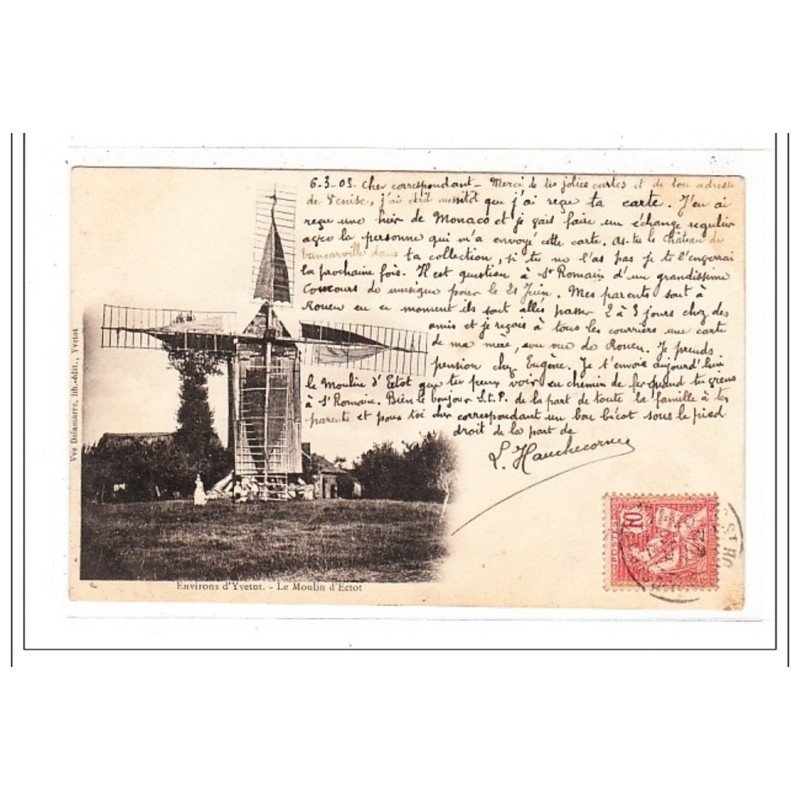 6-3-03. Cher correspondant_ Merci de tes jolies cartes et de ton adresse
de Venise, j'ai été aussitôt que j'ai reçu ta carte. J'en ai
reçu une hier de Monaco et je fais faire un échange regulier
avec la personne qui m'a envoyé cette carte. As-tu le Château de
Tancarville dans ta collection, si tu ne l'as pas je te l'enverrai
la prochaine fois. Il est question à St Romain d'un grandissime
Concours de musique pour le 21 Juin. Mes parents sont à
Rouen en ce moment ils sont allés passer 2 à 3 jours chez des
amis et je reçois à tous les courriers une carte
de ma mère, vue de Rouen. Je prends
pension chez Eugène. Je t'envoie aujourd'hui
le Moulin d'Ectot que tu peux voir en chemin de fer quand tu viens
à St Romain. Bien le bonjour S.t.P. de la part de toute la famille à tes
parents et pour toi cher correspondant un bon bécot sous le pied
droit de la part de
L. Hauchecorne
Vve Delamarre, lib.-édit., Yvetot
Environs d'Yvetot. - Le Moulin d'Ectot
10
POSTES